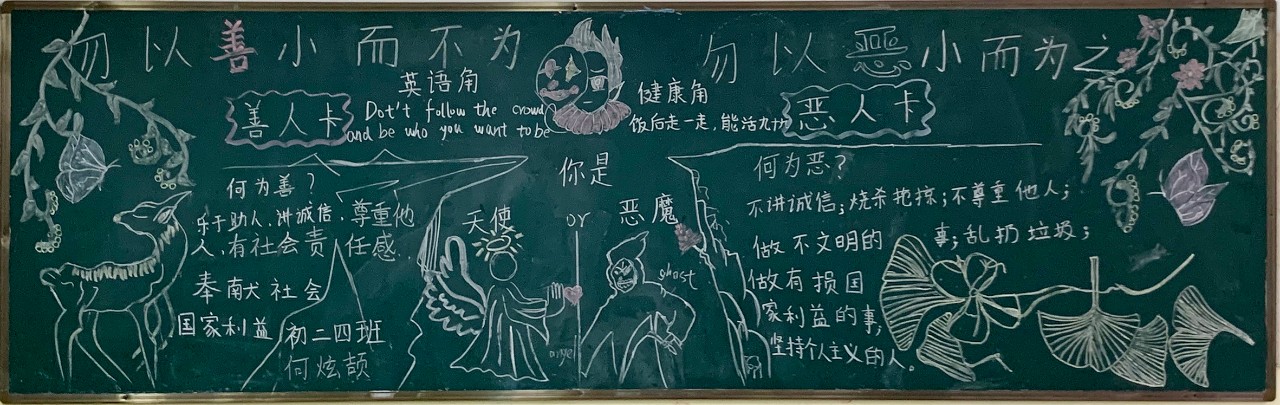 勿以善小而不为
勿以恶小而为之
英语角
Dot't follow the crowd
and be who you want to be
善人卡
健康角
饭后走一走,能活九十九
恶人卡
何为善?
乐于助人、讲诚信、尊重他
人、有社会责任感、
奉献社会
国家利益
初二四班
何炫颉
你是
天使
or
恶魔
ghost
angel
何为恶?
不讲诚信;烧杀抢掠;不尊重他人;
做不文明的事;乱扔垃圾;
做有损国
家利益的事;
坚持个人主义的人。